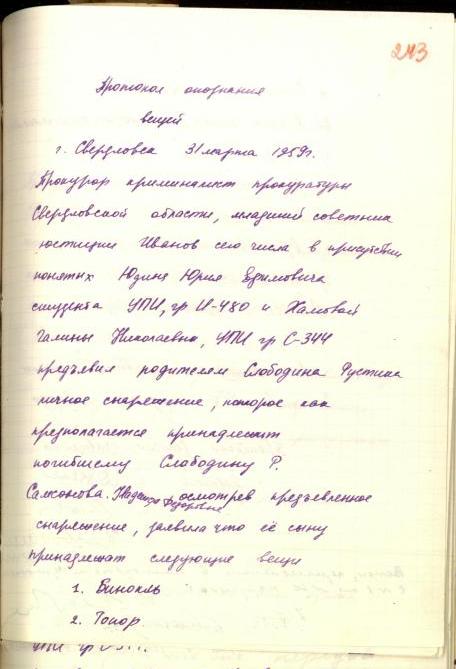 243
Протокол опознания
вещей
г. Свердловск 31 марта 1959г.
Прокурор криминалист прокуратуры
Свердловской области, младший советник
юстиции Иванов сего числа в присутствии
понятых Юдина Юрия Ефимовича
студента УПИ, гр И-480 и Хамовой
Галины Николаевны, УПИ гр С-344
предъявил родителям Слободина Рустика
личное снаряжение, которое как
предполагается принадлежит
погибшему Слободину Р.
Самсонова. Надежда Федоровна осмотрев предъявленное
снаряжение, заявила что её сыну
принадлежат следующие вещи
1. Бинокль
2. Топор.
УПИ гр